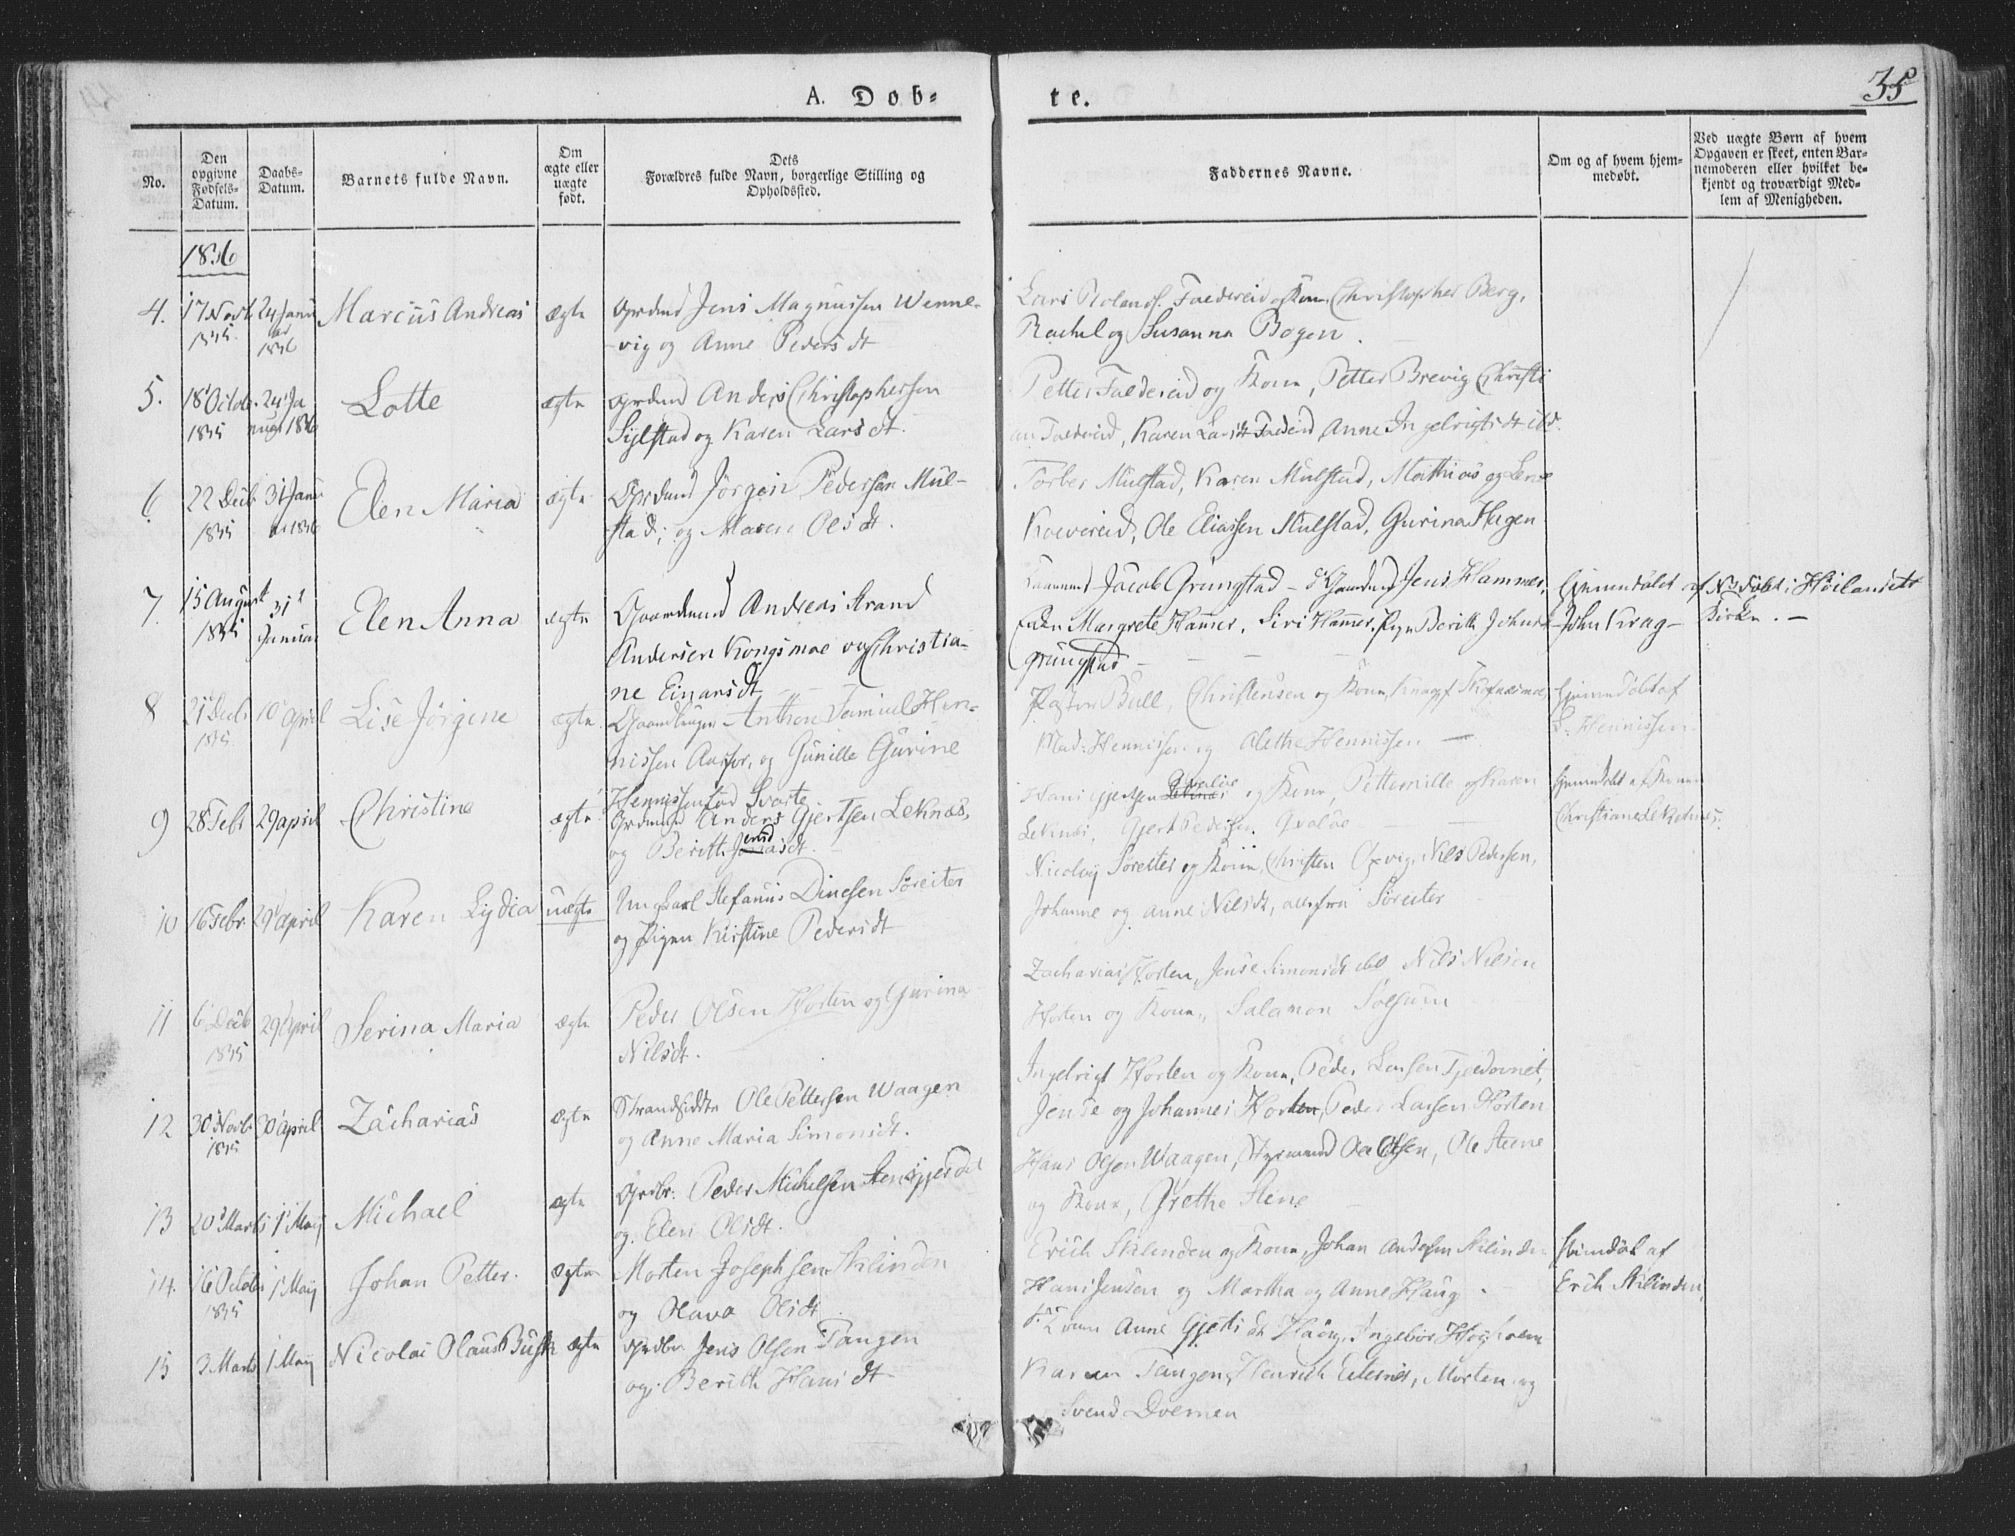 A. Døb-
te.
35
No.
Den opgivne Fødsels-Datum.
Daabs-Datum.
Barnets fulde Navn.
Om ægte eller uægte født.
Dets Forældres fulde Navn, borgerlige Stilling og Opholdssted.
Faddernes Navne.
Om og af hvem hjem-medøbt.
Ved uægte Børn af hvem Opgaven er skeet, enten Bar-nemoderen eller hvilket be-kjendt og troværdigt Med-lem af Menigheden.
1836
4. 17 Novb 1835 24 Janu ar 1836 Marcus Andreas ægte Grdmd Jens Magnussen Wenne-
vig og Anne Pedersdt
Lars Rolands. Foldereid og Kone, Christopher Berg,
Rachel og Susanna Bogen.
5. 18 Octob. 1835 24 Ja nuar 1836 Lotte ægte Grdmd Anders Christophersen
Sylstad og Karen Larsdt.
Petter Foldereid og Kone, Petter Brevig Christi
an Foldereid, Karen Larsdt Foldereid, Anne Ingelrigtsdt ibd.
6. 22 Decb. 1835 31 Janu ar 1836 Elen Maria ægte Grdmd Jørgen Pedersen Mul-
stad, og Maren Olsdt.
Torber Mulstad, Karen Mulstad, Mathias og Lene
Koevereid, Ole Eliassen Mulstad, Gurina Hagen
7. 15 August 1835 31 Januar Elen Anna ægte Gaardmand Andreas Strand
Andersen Kongsmoe og Christia-
ne Einarsdt
Jacob Grungstad - Gaardmd Jens Hammer,
Margrete Hamer, Siri Hamer, Pige Berith Johns
Grungstad
Hjemmedøbt af
John Krag -
NB døbt i Høilandets
Kirke. -
8 21 Decb 1835 10 April Lise Jørgine ægte Anthon Samuel Hen-
nissen Aarfor, og Gunille Gurine
Hennissen fød Svarte
Pastor Bull, Christensen og Kone,
Mad: Hennissen og Alethe Hennissen -
Hjemmedøbt af
Hennissen
9 28 Febr 29 april Christine ægte Grdmand Anders Gjertsen Leknæs,
og Berith Jensdt.
Hans Gjertsen Qvaløe og Kone, Petternille og Karen
Leknæs, Gjert Pedersen Qvaløe
Hjemmedøbt af Konen
Christiane Leknæs.
10 16 Febr. 29 april Karen Lydia uægte Ungkarl Stefanus Dinesen Søreiter
og Pigen Kirstine Pedersdt
Nicolay Søreiter og Kone, Christen Oxvig, Nils Pedersen,
Johanne og Anne Nilsdt, alle fra Søreiter
11 6 Decb 1835 29 April Serina Maria ægte Peder Olsen Horten og Gurina
Nilsdt.
Zacharias Horten, Jense Simonsdt ibd. Nils Nilsen
Horten og Kone, Salamon Solsum
12 30 Novb. 1835 30 april Zacharias ægte Strandsidder Ole Pettersen Waagen
og Anne Maria Simonsdt.
Ingelrigt Horten og Kone, Peder Larsen
Jense og Johannes Horten, Peder Larsen Horten
13 20 Marts 1 Maij Michael ægte Grdbr: Peder Michelsen Stensgjerdet
og Elen Olsdt.
Hans Olsen Waagen, Ole Olsen, Ole Steene
og Kone, Grethe Stene
14. 16 October 1835 1 Maij Johan Petter. ægte Morten Josephsen Skilinden
og Olava Olsdt
Erich Skilinden og Kone, Johan Andersen Skilinden
Hans Jensen og Martha og Anne Haug.
Hiemdøbt af
Erich Skilinden,
15 3 Marts 1 Maij Nicolai Olaus Busk ægte Grdbr Jens Olsen Tangen
og Berith Hansdt
Anne Gjertsdt Haug, Ingebor
Karen Tangen, Henrich Eiternes, Morten og
Svend Doemen